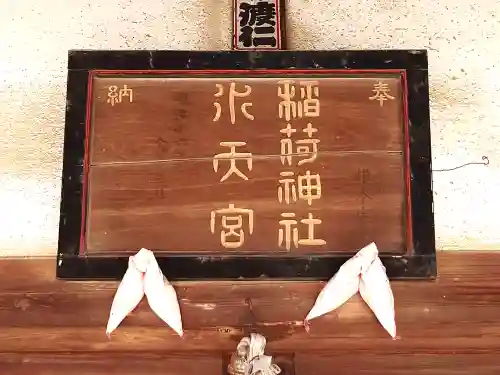 渡仁
奉
稲荷神社
水天宮
納